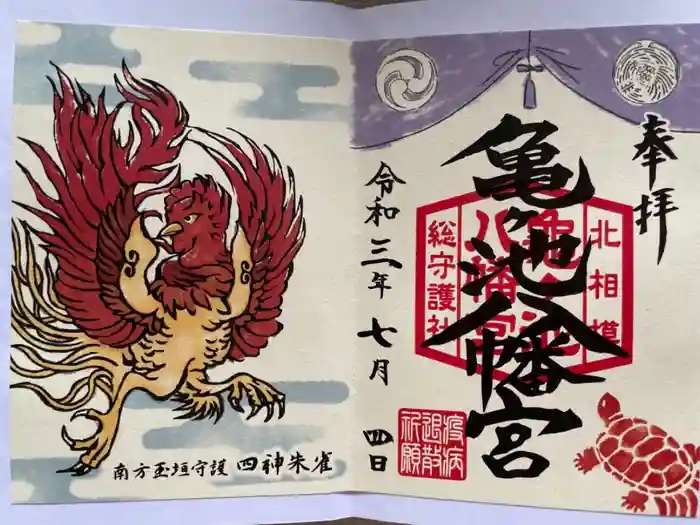 奉拝
亀ヶ池八幡宮
北相模
亀ヶ池
八幡宮
総守護社
令和三年七月四日
疫病
退散
祈願
南方玉垣守護 四神朱雀